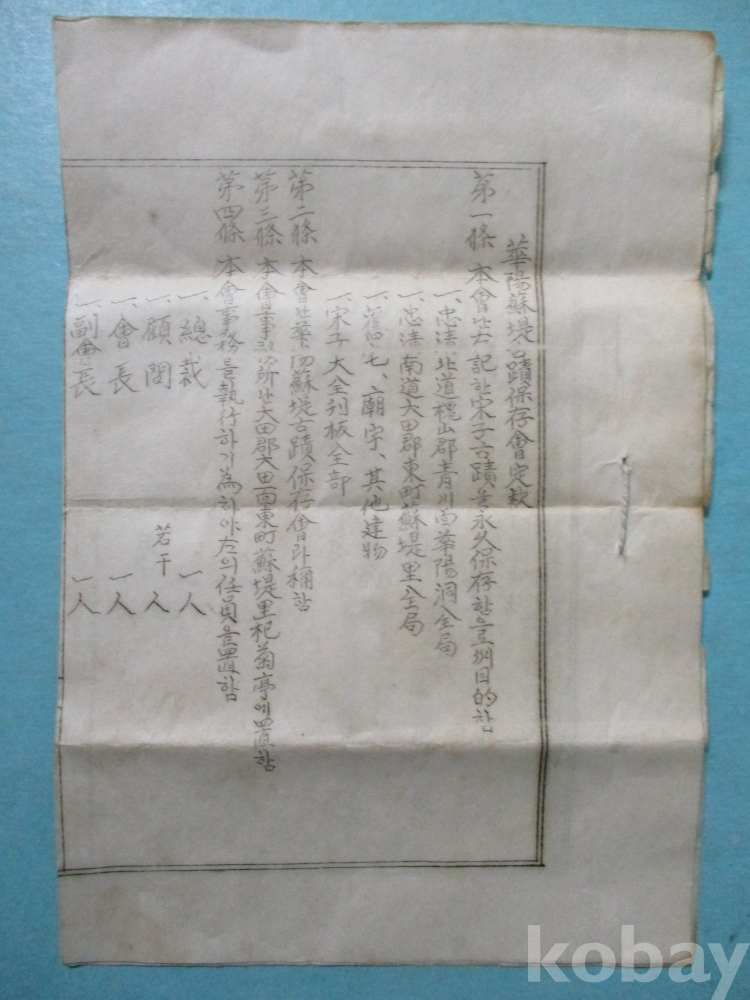 華陽蘇堤古蹟保存會定款
第一條 本會는左記한宋子古蹟을永久保存함으로써目的함
一、忠淸北道槐山郡靑川面華陽洞全局
一、忠淸南道大田郡東町蘇堤里全局
一、舊宅、廟宇、其他建物
一、宋子大全刊板全部
第二條 本會는華陽蘇堤古蹟保存會라稱함
第三條 本會事務所는大田郡大田面東町蘇堤里杞菊亭에置함
第四條 本會事務를執行하기爲하야左의任員을置함
一、總裁 一人
一、顧問 若干人
一、會長 一人
一、副會長 一人
kobay